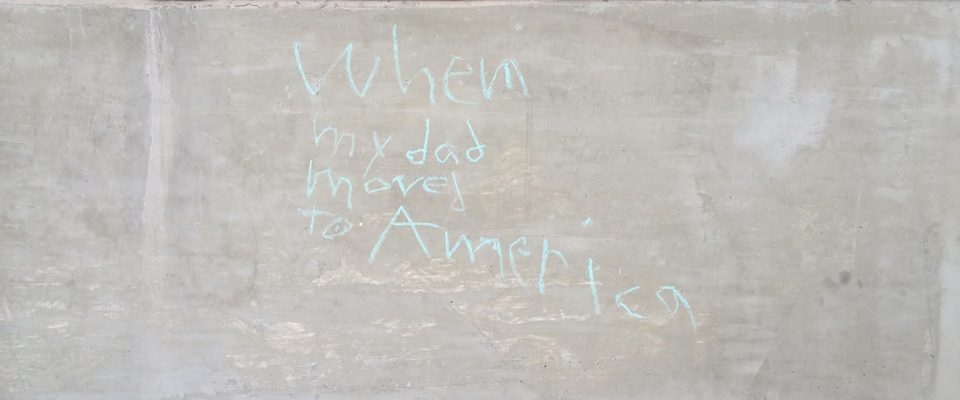 When
my dad
moves
to America